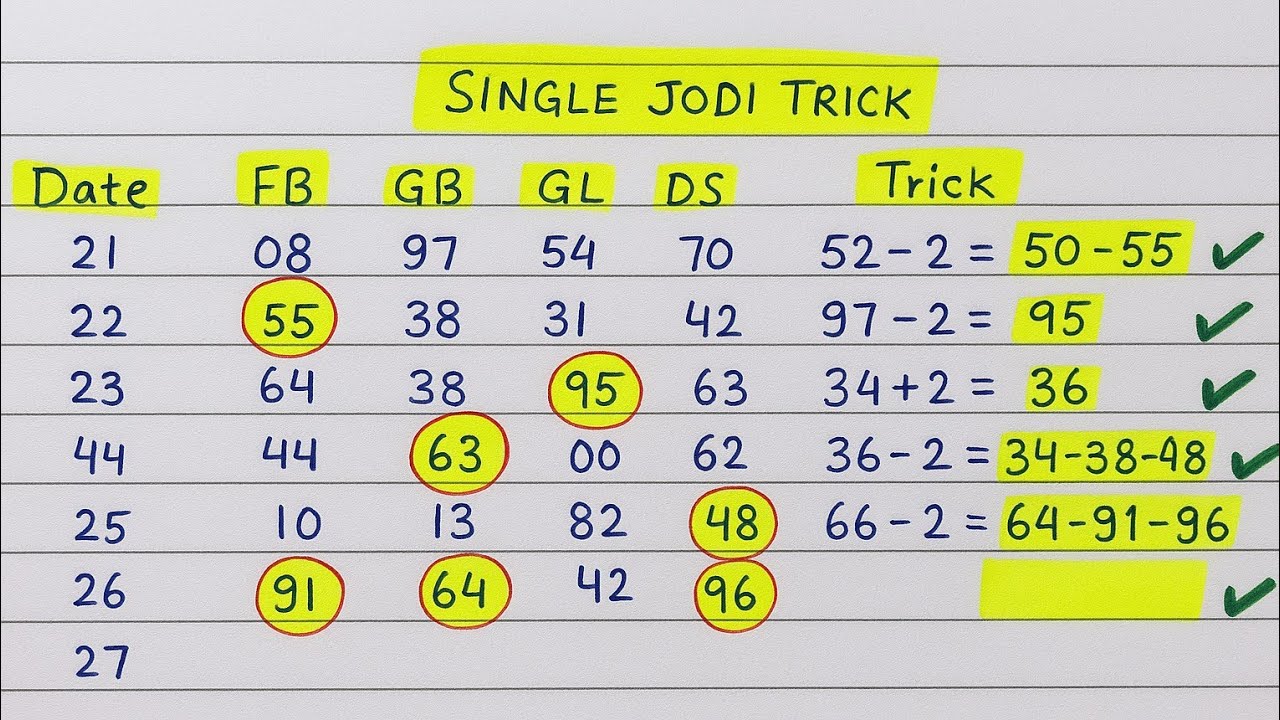 SINGLE JODI TRICK
Date FB GB GL DS Trick
21 08 97 54 70 52-2 = 50-55 ✓
22 55 38 31 42 97-2 = 95 ✓
23 64 38 95 63 34+2 = 36 ✓
44 44 63 00 62 36-2 = 34-38-48 ✓
25 10 13 82 48 66-2 = 64-91-96
26 91 64 42 96 ✓
27